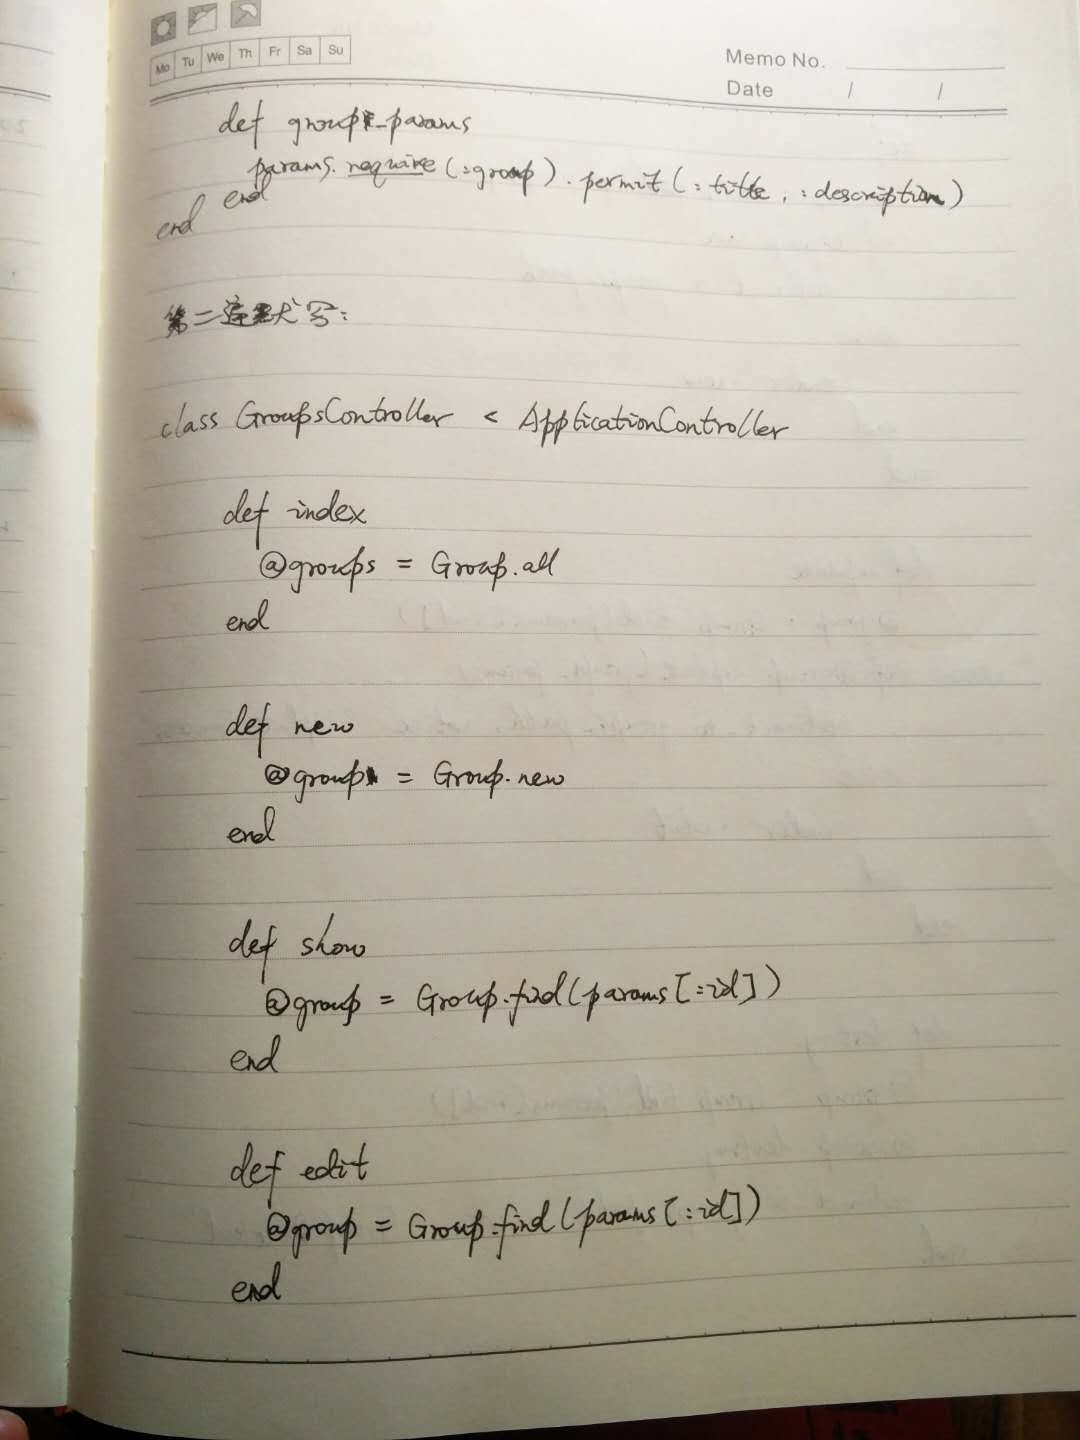 Mo Tu We Th Fr Sa Su
Memo No.
Date / /
def group_params
params.require(:group).permit(:title, :description)
end
end
第二遍默写:
class GroupsController < ApplicationController
def index
@groups = Group.all
end
def new
@group = Group.new
end
def show
@group = Group.find(params[:id])
end
def edit
@group = Group.find(params[:id])
end